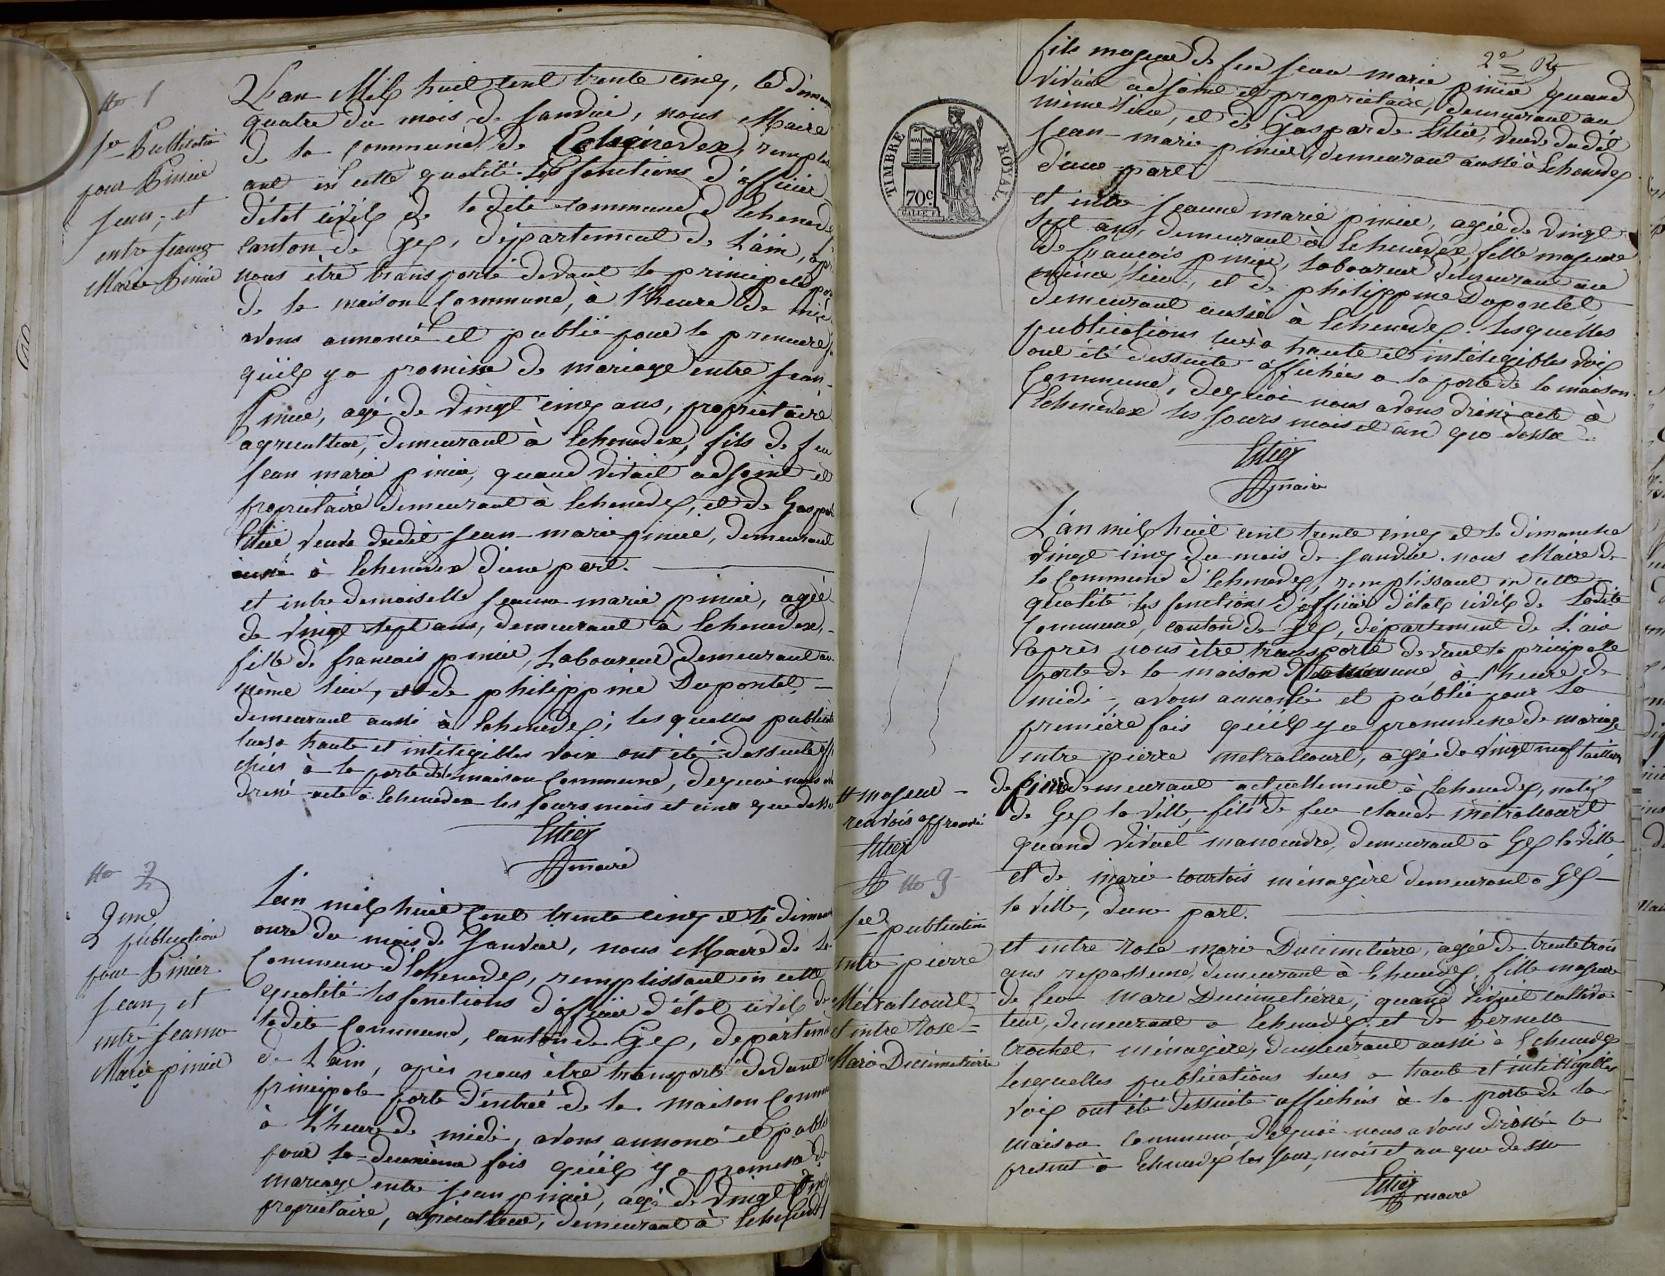 No 1
1re Publication
pour Pinier
Jean, et
entre Jeanne
Marie Pinier
L'an Mil huit cent trente cinq, le diman
quatre du mois de Janvier, nous Maire
de la commune de Echenevex, remplis
ant en cette qualité les fonctions d'officier
d'état civil de ladite commune d'Echenevex
canton de Gex, département de l'ain, ap
nous être transporté devant la principale por
de la maison commune, à l'heure de midi
avons annoncé et publié pour la premiere f
quil y a promesse de mariage entre Jean
Pinier, agé de vingt cinq ans, propriétaire
agriculteur, demeurant à Echenevex, fils de feu
Jean marie pinier, quand vivait adjoint et
propriétaire demeurant à Echenevex, et de Gaspar
Estier veuve dudit Jean-marie pinier, demeurant
aussi à Echenevex d'une part.
et entre demoiselle Jeanne marie pinier, agée
de vingt sept ans, demeurant à Echenevex,
fille de francois pinier, Laboureur demeurant au
même lieu, et de philippine Dupontel,
demeurant aussi à Echenevex; lesquelles publicat
lues à haute et intelegibles voix ont été dessuite affi
chées à la porte de la maison commune, dequoi nous av
dréssé acte à Echenevex les jours mois et an que dessus
Estier
maire
No 2
2me
publication
pour Pinier
Jean, et
entre Jeanne
Marie pinier
L'an mil huit cent trente cinq et le diman
onze du mois de Janvier, nous Maire de la
Commune d'Echenevex, remplissant en cette
qualité les fonctions d'officier d'état civil de
ladite commune, canton de Gex, départem
de l'ain, après nous être transporté devant la
principale porte d'entrée de la maison commu
à l'heure de midi, avons annoncé et publié
pour la deuxieme fois quil y a promesse de
mariage entre Jean pinier, agé de vingt cinq
propriétaire, agriculteur, demeurant à Echenevex
2e
fils majeur de feu Jean marie pinier quand
vivait adjoint et propriétaire, demeurant au
même lieu, et de Gasparde Estier, veuve dudit
Jean-marie pinier, demeurant aussi à Echenevex
d'une part.
TIMBRE ROYAL.
70c
et entre Jeanne marie pinier, agée de vingt
sept ans, demeurant à Echenevex fille majeure
de francois pinier, laboureur demeurant au
même lieu, et de philippine Dupontel
demeurant aussi à Echenevex. Lesquelles
publications lues à haute et intelegibles voix
ont été dessuite affichées à la porte de la maison
Commune, dequoi nous avons dréssé acte à
Echenevex les jours mois et an que dessus
Estier
maire
L'an mil huit cent trente cinq et le dimanche
vingt cinq du mois de Janvier. nous Maire de
la Commune d'Echenevex, remplissant en cette
qualité les fonctions d'officier d'état civil de ladite
Commune, canton de Gex, département de l'ain
après nous être transporté devant la pricipale
porte de la maison commune, à l'heure de
midi, avons annoncé et publié pour la
première fois quil y a promesse de mariage
entre pierre metralcourt, agé de vingt neuf tailleur
de pierre demeurant actuellement à Echenevex, natif
de Gex la ville, fils de feu claude metralcourt
quand vivait manouvre, demeurant à Gex la ville
et de marie courtois ménagère demeurant à Gex
la ville, d'une part.
# majeur
renvois approuvé
Estier
No 3
1re publication
entre pierre
Métralcourt
et entre rose
Marie Ducimetière
et entre rose marie Ducimetière, agée de trente trois
ans repasseuse, demeurant à Echenevex, fille majeure
de feu Marc Ducimetière, quand vivait cultiva
teur, demeurant à Echenevex et de Pernette
Crochet, ménagère, demeurant aussi à Echenevex
Lesquelles publications lues à haute et intelegibles
voix ont été dessuite affichées à la porte de la
maison commune, dequoi nous avons dréssé le
présent à Echenevex les jour, mois et an que dessus
Estier
maire